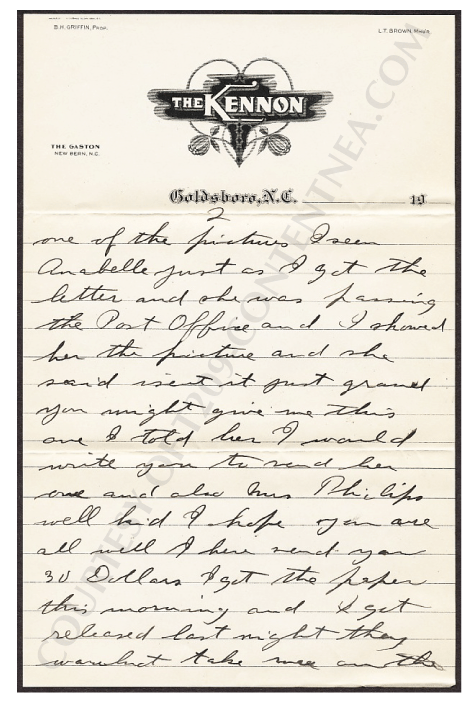 B.H. GRIFFIN, PROP.
L.T. BROWN, MAN'R
THE KENNON
THE GASTON
NEW BERN, N.C.
Goldsboro, N.C. 19
2
one of the pictures I seen
Anabelle just as I got the
letter and she was passing
the Post Office and I showed
her the picture and she
said isent it just grand
you might give me this
one I told her I would
write you to send her
one and also Mrs Philips
well kid I hope you are
all well I here send you
30 Dollars I got the paper
this morning and I got
released last night they
take me on the
COURTESY OF TR09@CONTENTNEA.COM